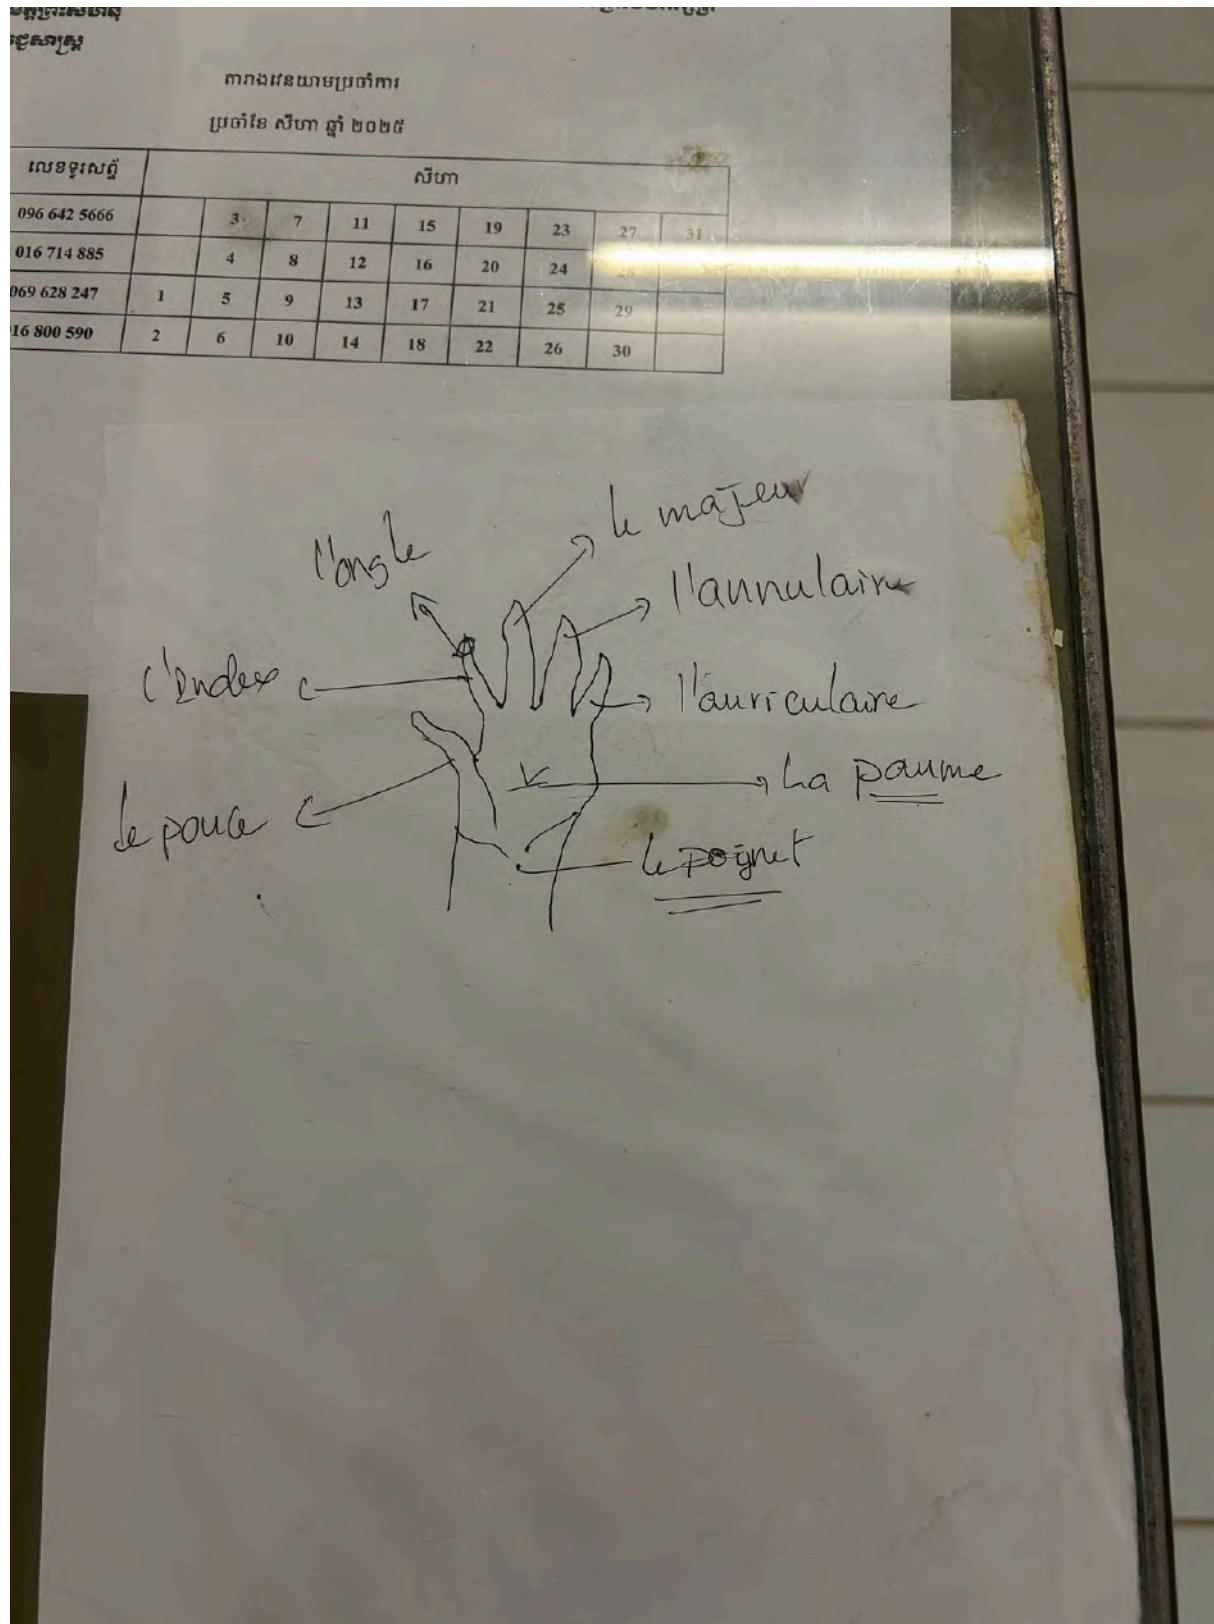 តារាងវេនយាមប្រចាំការ
ប្រចាំខែ សីហា ឆ្នាំ ២០២៥
លេខទូរសព្ទ័ សីហា
096 642 5666 3 7 11 15 19 23 27 31
016 714 885 4 8 12 16 20 24 28
069 628 247 1 5 9 13 17 21 25 29
16 800 590 2 6 10 14 18 22 26 30
le majeur
l'ongle
l'annulaire
l'index
l'auriculaire
La paume
le pouce
le poignet